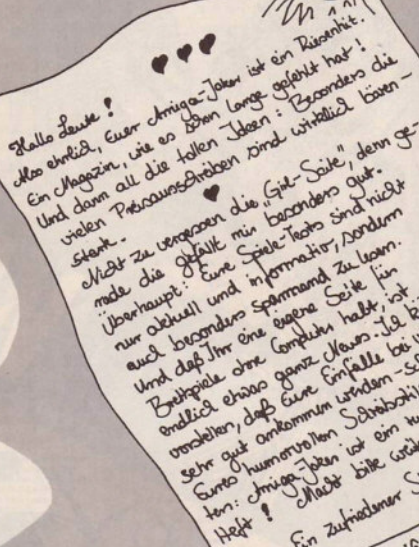 Hallo Leute!
Also ehrlich, Euer Amiga-Joker ist ein Riesenhit.
Ein Magazin, wie es schon lange gefehlt hat!
Und dann all die tollen Ideen: Besonders die
vielen Preisausschreiben sind wirklich bären-
stark.
Nicht zu vergessen die „Girl-Seite“, denn ge-
rade die gefällt mir besonders gut.
Überhaupt: Eure Spiele-Tests sind nicht
nur aktuell und informativ, sondern
auch besonders spannend zu lesen.
Und daß Ihr eine eigene Seite für
Brettspiele ohne Computer habt, ist
endlich etwas ganz Neues. Ich k
vorstellen, daß Eure Einfälle bei
sehr gut ankommen werden – sc
Eures humorvollen Schreibsti
ten: Amiga-Joker ist ein
Heft! Macht bitte weit
Ein zufriedener